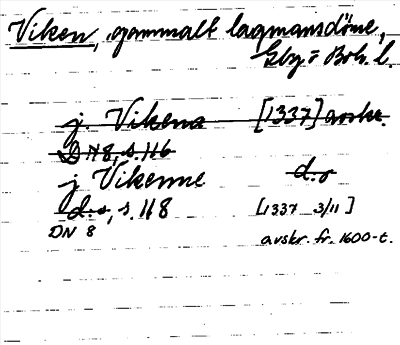 Viken, gammalt lagmansdöme,
Gbg o Boh. l.
j. Vikena [1337] avskr.
DN 8, s. 116
j Vikenne d.o
d.o, s. 118 [1337 3/11]
DN 8 avskr. fr. 1600-t.